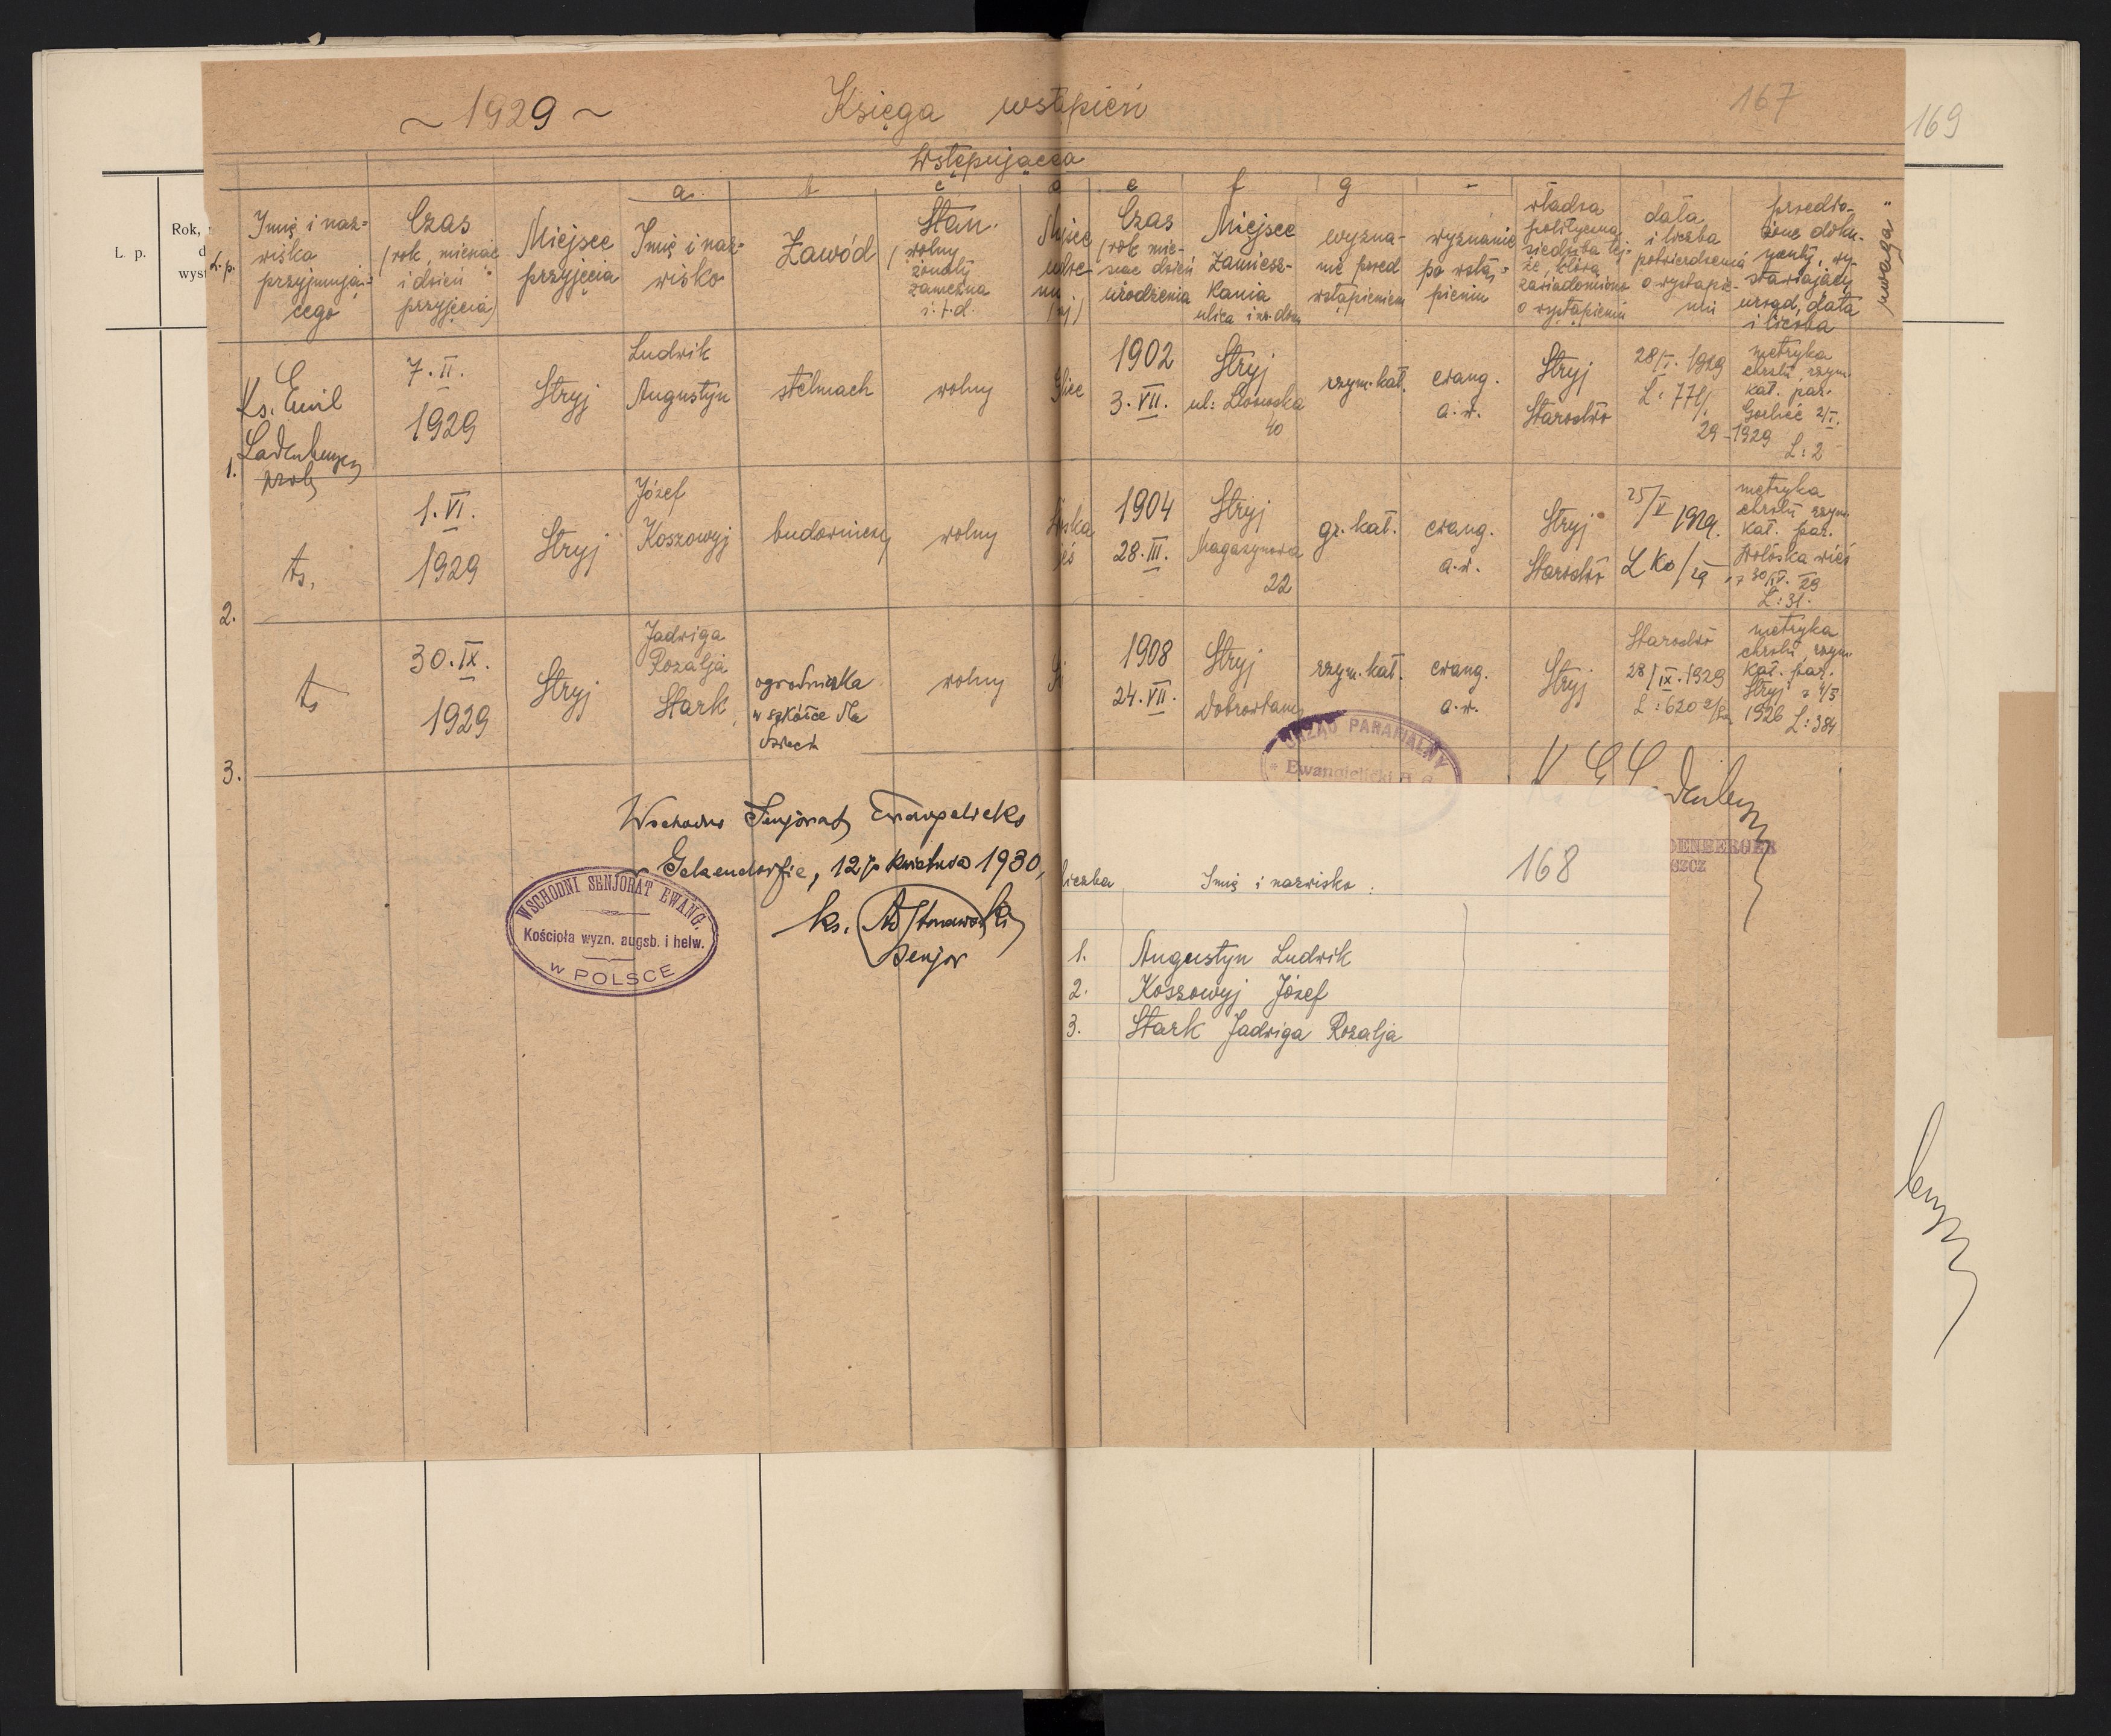 ~ 1929 ~ Księga wstąpień 167
169
Wstępująca
a. b c d e f g -
L. p.
Rok,
wyst
L.p.
Imię i naz=
wisko
przyjmują=
cego
Czas
(rok, miesiąc
i dzień
przyjęcia)
Miejsce
przyjęcia
Imię i naz=
wisko
Zawód
Stan.
(wolny
żonaty
zamężna
i. t. d.
Czas
(rok mie-
siąc dzień
urodzenia
Miejsce
zamiesz-
kania
ulica i nr. domu
wyzna-
nie przed
wstąpieniem
wyznanie
po wstą=
pieniu
władza
polityczna
siedziba tej-
że, którą
zawiadomiono
o wystąpieniu
data
i liczba
potwierdzenia
o wystąpie-
niu
przedło-
żone doku-
menty, wy-
stawiający
urząd, data
i liczba
"uwaga"
1.
Ks. Emil
Ladenberger
7. II.
1929
Stryj
Ludwik
Augustyn
stelmach
wolny
1902
3. VII.
Stryj
ul: Lwowska
40
rzym. kat.
ewang.
a. w.
Stryj
Starostwo
28/I. 1929
L: 771/
29
metryka
chrztu rzym.
kat. par.
Gorlice 2/I.
1929
L: 2
2.
ts.
1. VI.
1929
Stryj
Józef
Koszowyj
budowniczy
wolny
1904
28. III.
Stryj
Magazynowa
22
gr. kat.
ewang.
a. w.
Stryj
Starostwo
25/V 1929.
L Ko/29
metryka
chrztu rzym.
kat. par.
Wołoska wieś
z 30/IV. 29
L: 31.
3.
ts
30. IX.
1929
Stryj
Jadwiga
Rozalja
Stark
ogrodniczka
w szkółce dla
dzieci
wolny
1908
24. VII.
Stryj
Dobrowlany
rzym. kat.
ewang.
a. w.
Stryj
Starostwo
28/IX. 1929
L: 620
metryka
chrztu rzym
kat. par.
Stryj z 4/5
1926 L: 384
URZĄD PARAFIALNY
Ewangielicki
DENBERGER
SZCZ
Wschodni Senjorat Ewangelicki
Gelsendorfie, 12go kwietnia 1930,
ks.
Senjor
WSCHODNI SENJORAT EWANG.
Kościoła wyzn. augsb. i helw.
w POLSCE
168
liczba Imię i nazwisko.
1. Augustyn Ludwik
2. Koszowyj Józef
3. Stark Jadwiga Rozalja